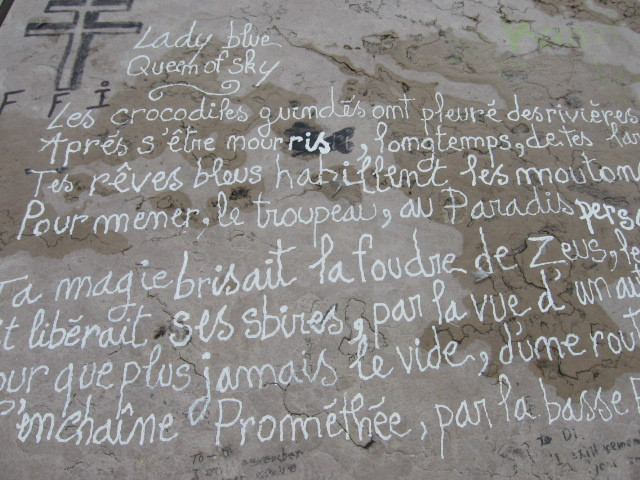 Lady blue
Queen of Sky
F F I
Les crocodiles guindés ont pleuré des rivières
Aprés s'être nourris, longtemps, de tes
Tes rêves bleus habillent les moutons
Pour mener, le troupeau, au Paradis
Ta magie brisait la foudre de Zeus,
libérait ses sbires, par la vue d'un
que plus jamais le vide, d'une
enchaîne Prométhée, par la basse
To Di
To Di.
I still